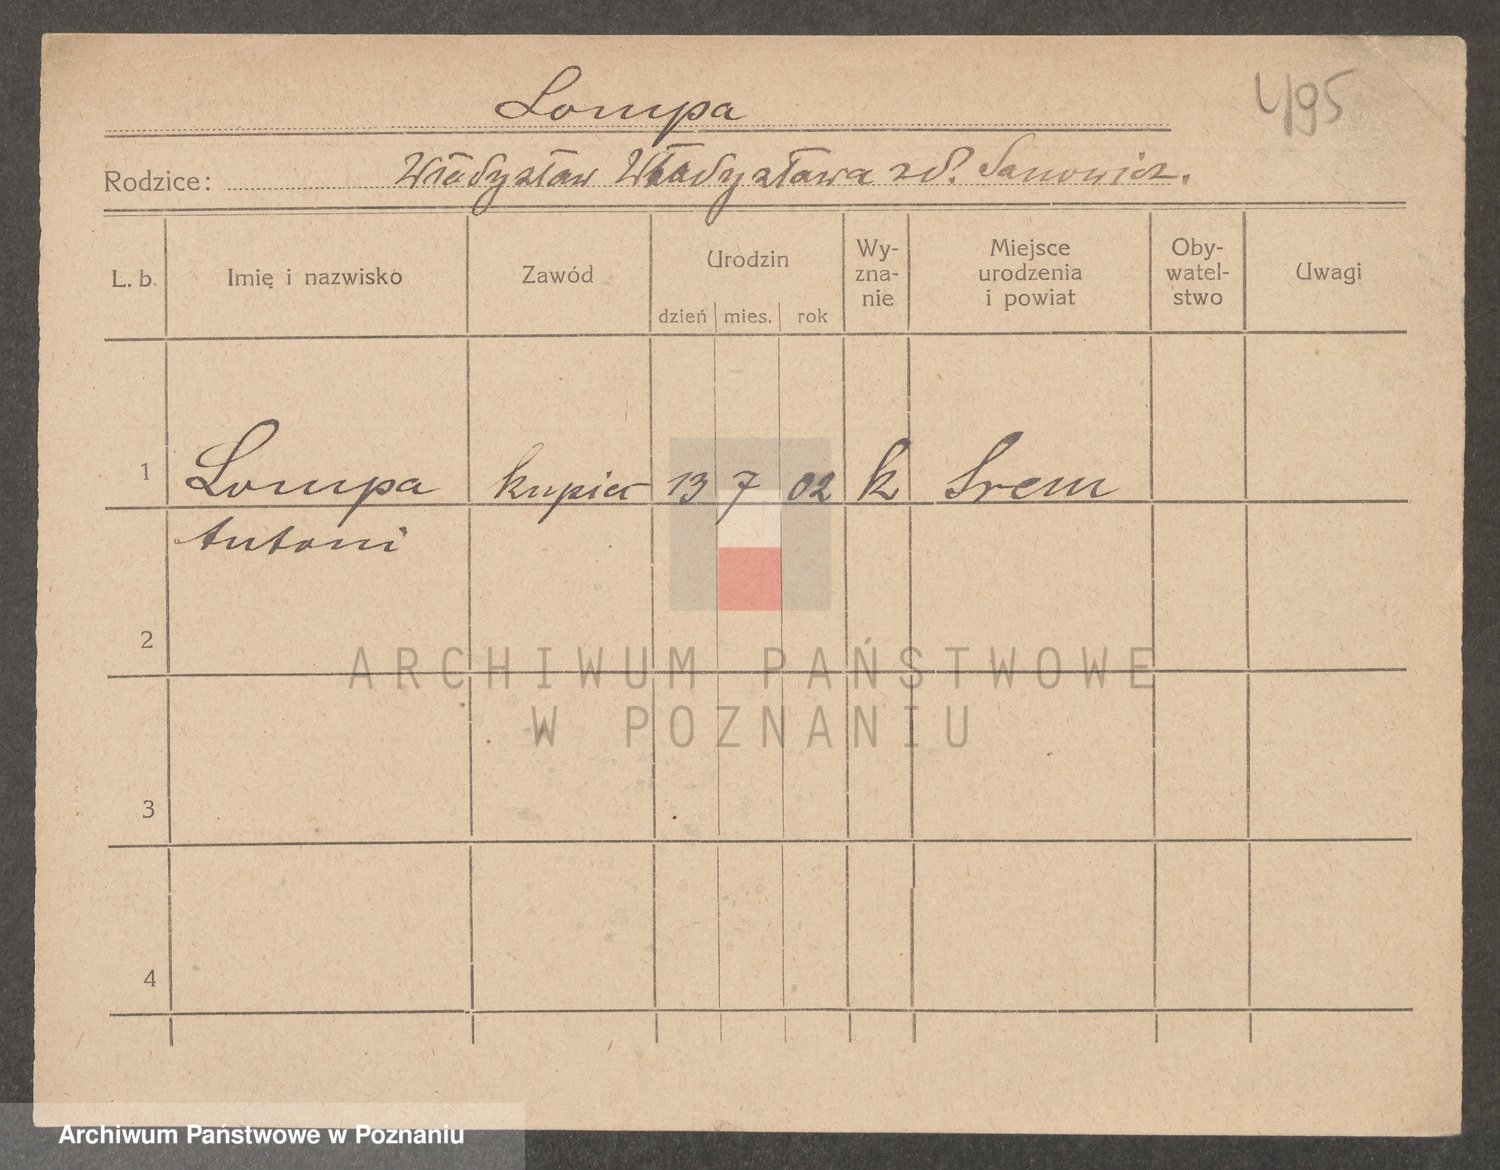 Lompa
4/95
Rodzice: Władysław Władysława zd. Janowicz.
L. b. Imię i nazwisko Zawód Urodzin dzień mies. rok Wy-zna-nie Miejsce urodzenia i powiat Oby-watel-stwo Uwagi
1 Lompa kupiec 13 7 02 k Śrem
Antoni
2
ARCHIWUM PAŃSTWOWE
W POZNANIU
3
4
Archiwum Państwowe w Poznaniu